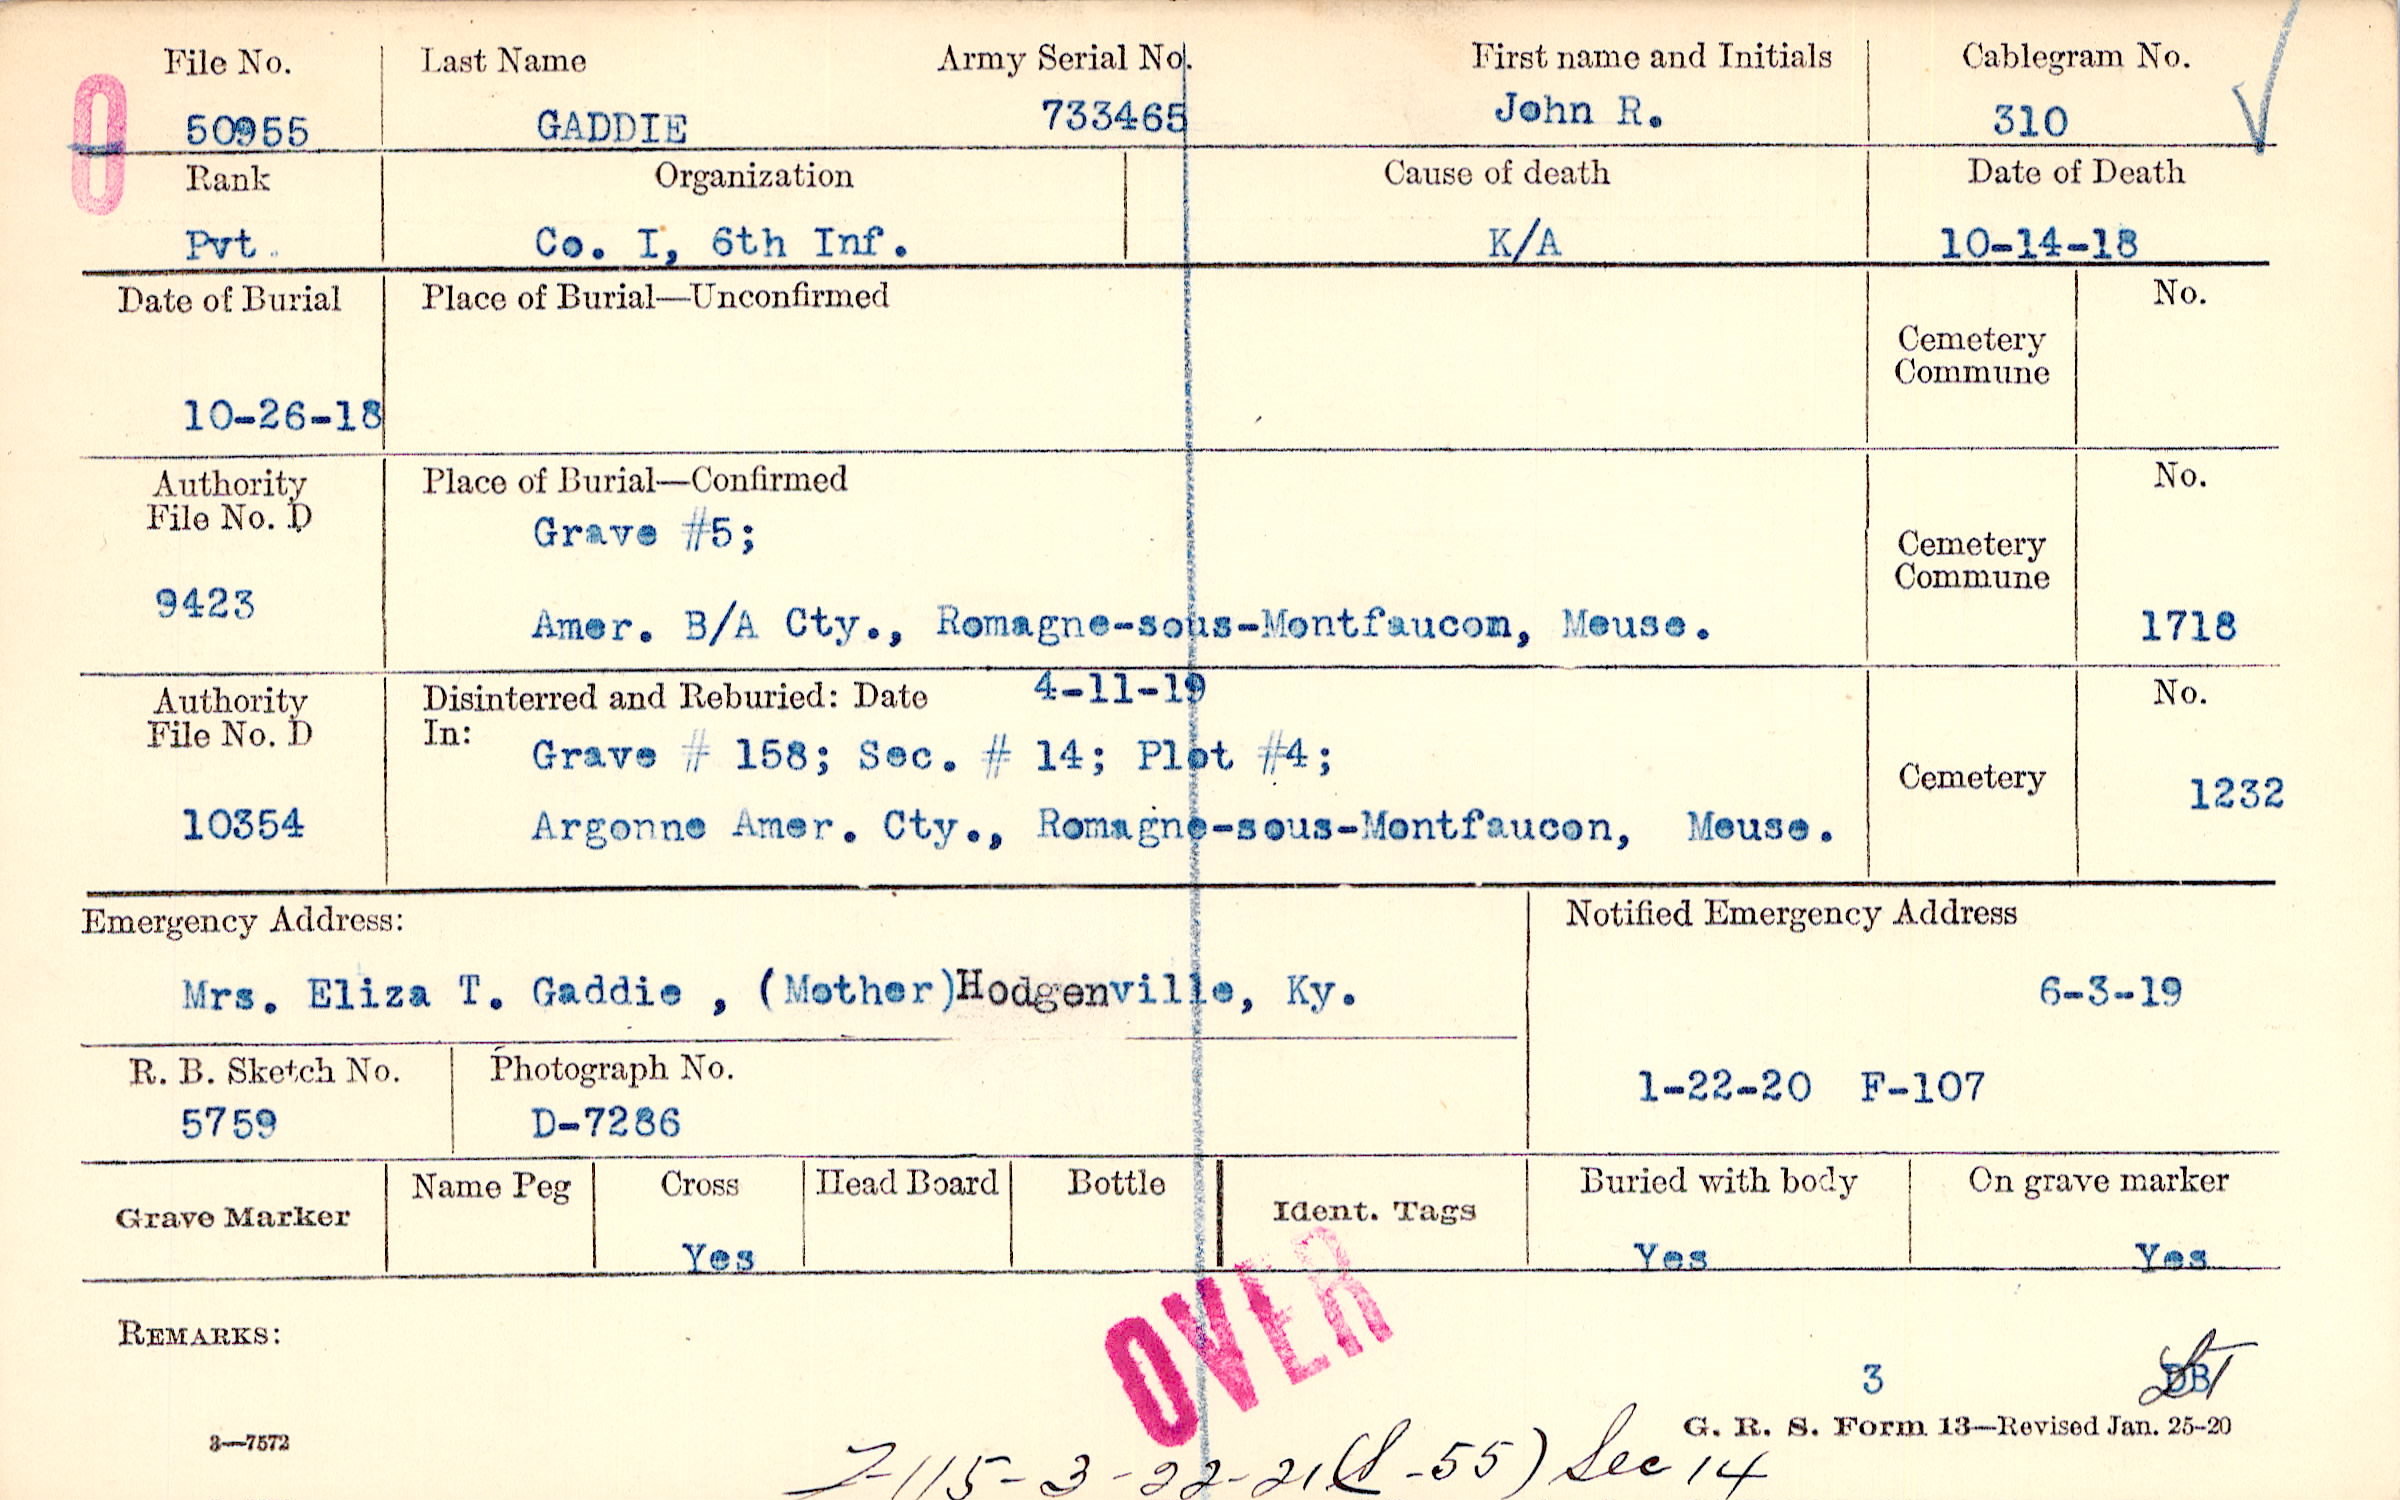 File No. Last Name Army Serial No. First name and Initials Cablegram No.
50955 GADDIE 733465 John R. 310
Rank Organization Cause of death Date of Death
Pvt. Co. I, 6th Inf. K/A 10-14-18
Date of Burial Place of Burial—Unconfirmed No.
Cemetery
Commune
10-26-18
Authority Place of Burial—Confirmed No.
File No. D
Grave #5;
Cemetery
Commune
9423
Amer. B/A Cty., Romagne-sous-Montfaucon, Meuse. 1718
Authority Disinterred and Reburied: Date 4-11-19 No.
File No. D In:
Grave # 158; Sec. # 14; Plot #4;
Cemetery 1232
10354 Argonne Amer. Cty., Romagne-sous-Montfaucon, Meuse.
Emergency Address: Notified Emergency Address
Mrs. Eliza T. Gaddie , (Mother)Hodgenville, Ky. 6-3-19
R. B. Sketch No. Photograph No.
1-22-20 F-107
5759 D-7286
Grave Marker Name Peg Cross Head Board Bottle Ident. Tags Buried with body On grave marker
Yes Yes Yes
OVER
REMARKS:
3 DB
G. R. S. Form 13—Revised Jan. 25-20
3—7572
115-3-22-21 ( -55) Sec 14